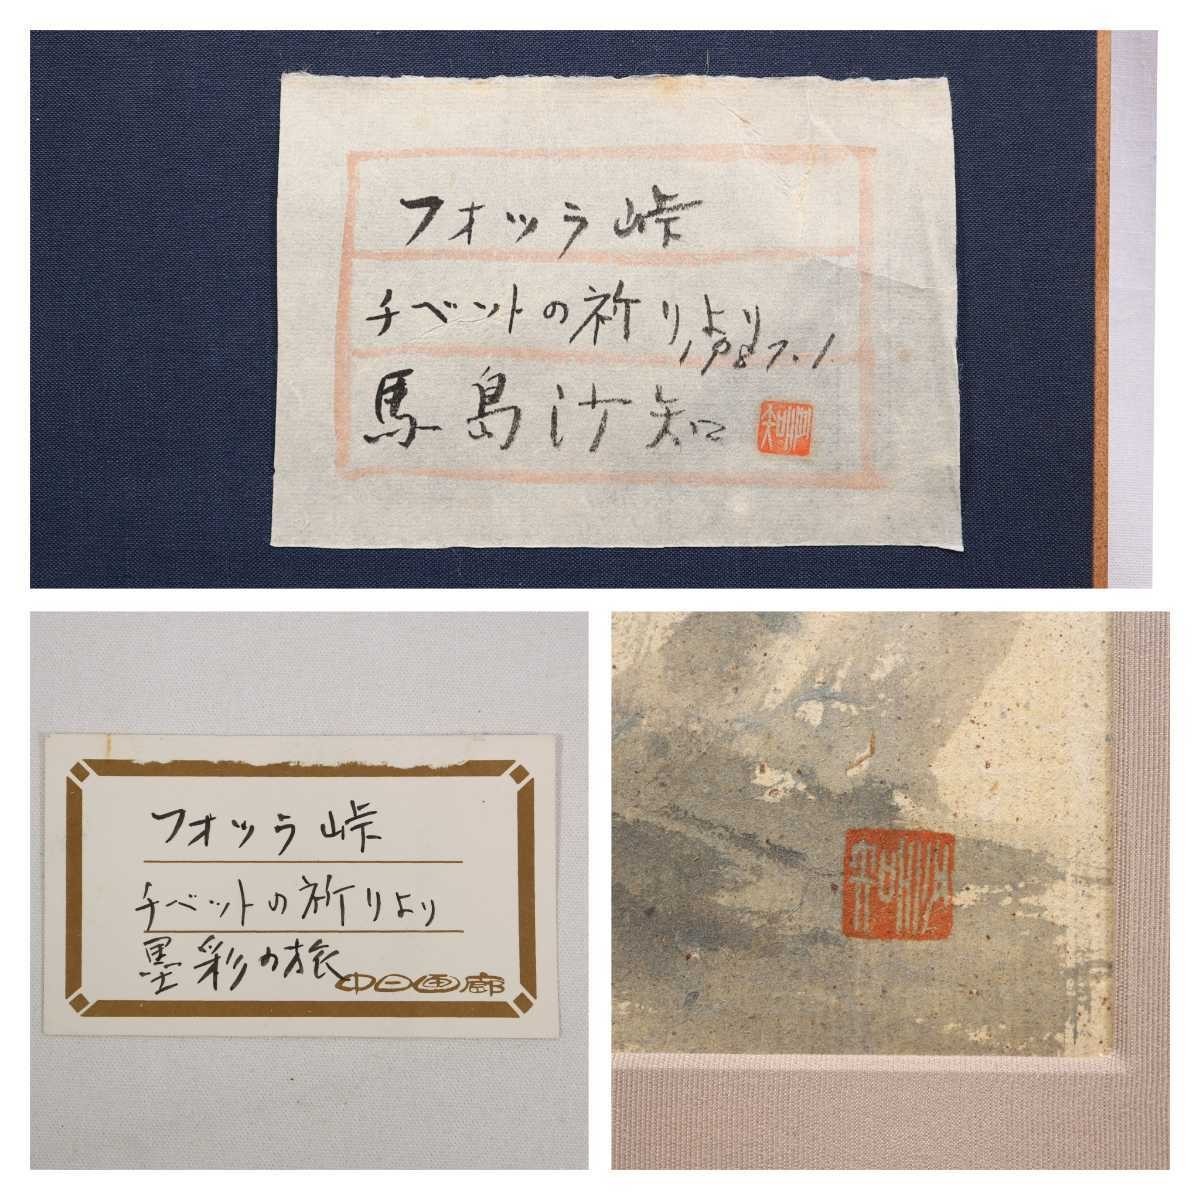 フォツラ峠
チベットの祈りより
1987.1
馬島沙知
フォツラ峠
チベットの祈りより
墨彩の旅
中日画廊